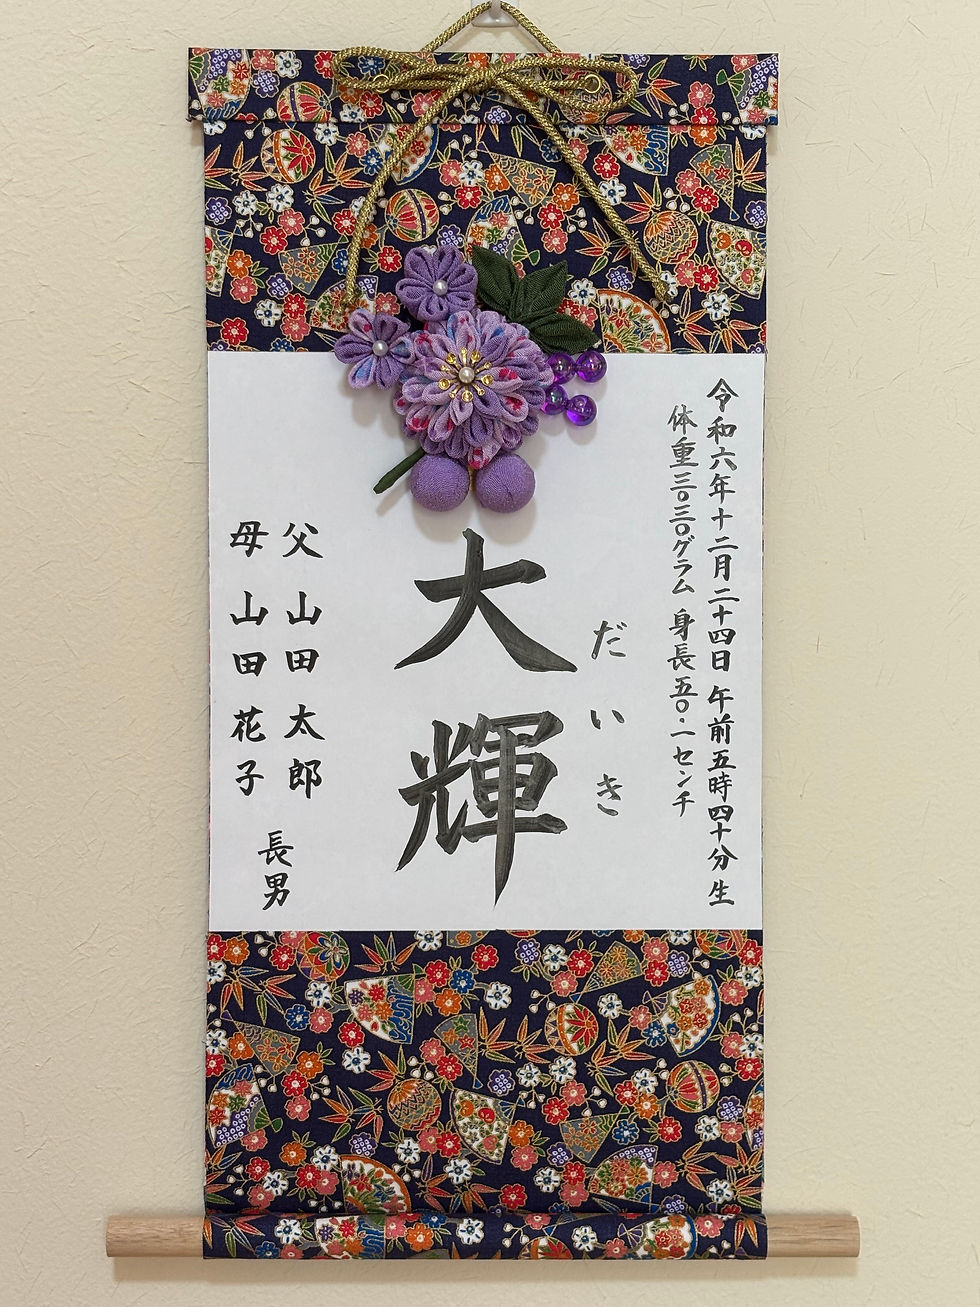 令和六年十二月二十四日 午前五時四十分生
体重三〇三〇グラム 身長五〇・一センチ
だいき
大輝
父 山田太郎
母 山田花子
長男